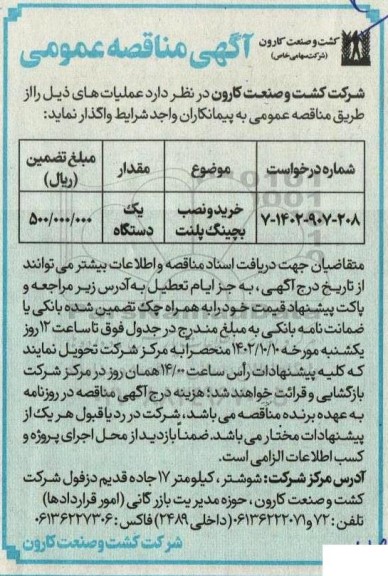 کشت و صنعت کارون
(شرکت سهامی خاص)
آگهی مناقصه عمومی
شرکت کشت و صنعت کارون در نظر دارد عملیات های ذیل را از
طریق مناقصه عمومی به پیمانکاران واجد شرایط واگذار نماید:
شماره درخواست موضوع مقدار مبلغ تضمین (ریال)
۷-۱۴۰۲-۹۰۷-۲۰۸ خرید و نصب بچینگ پلنت یک دستگاه ۵۰۰/۰۰۰/۰۰۰
متقاضیان جهت دریافت اسناد مناقصه و اطلاعات بیشتر می توانند
از تاریخ درج آگهی ، به جز ایام تعطیل به آدرس زیر مراجعه و
پاکت پیشنهاد قیمت خود را به همراه چک تضمین شده بانکی یا
ضمانت نامه بانکی به مبلغ مندرج در جدول فوق تا ساعت ۱۲ روز
یکشنبه مورخه ۱۴۰۲/۱۰/۱۰ منحصراً به مرکز شرکت تحویل نمایند
که کلیه پیشنهادات رأس ساعت ۱۴/۰۰ همان روز در مرکز شرکت
بازگشایی و قرائت خواهند شد؛ هزینه درج آگهی مناقصه در روزنامه
به عهده برنده مناقصه می باشد، شرکت در رد یا قبول هر یک از
پیشنهادات مختار می باشد. ضمناً بازدید از محل اجرای پروژه و
کسب اطلاعات الزامی است.
آدرس مرکز شرکت: شوشتر، کیلومتر ۱۷ جاده قدیم دزفول شرکت
کشت و صنعت کارون ، حوزه مدیریت بازرگانی (امور قراردادها)
تلفن : ۷۲ و ۰۶۱۳۶۲۲۲۰۷۱ (داخلی ۲۴۸۹) فاکس : ۰۶۱۳۶۲۲۷۳۰۶
شرکت کشت و صنعت کارون